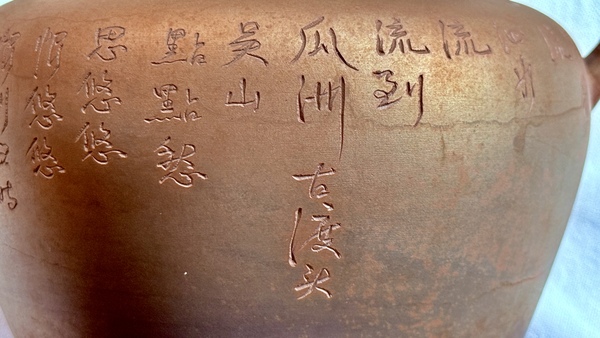 泗水
流
流到
瓜洲古渡头
吴山
點點愁
思悠悠
恨悠悠